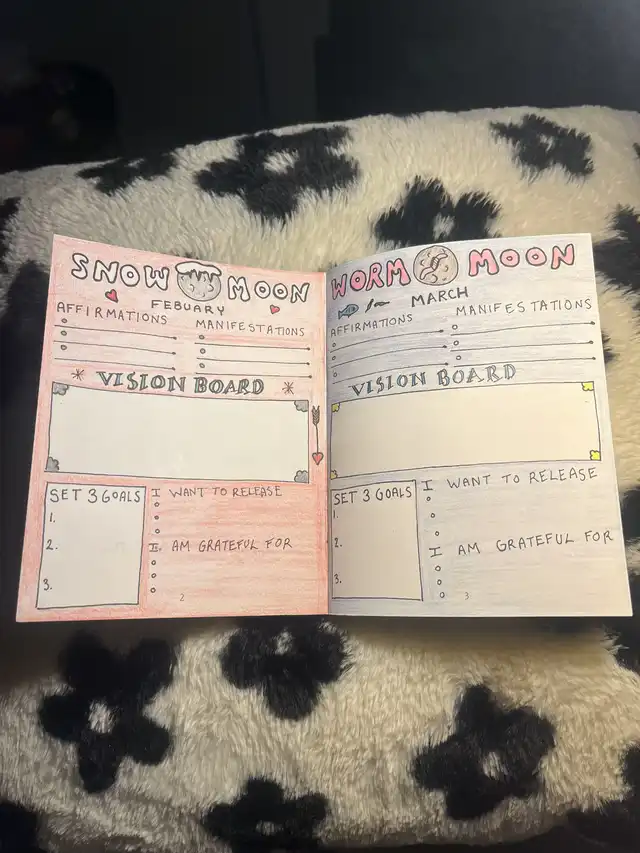 SNOW MOON
FEBUARY
AFFIRMATIONS MANIFESTATIONS
VISION BOARD
SET 3 GOALS
1.
2.
3.
I WANT TO RELEASE
I AM GRATEFUL FOR
2
WORM MOON
MARCH
AFFIRMATIONS MANIFESTATIONS
VISION BOARD
SET 3 GOALS
1.
2.
3.
I WANT TO RELEASE
I AM GRATEFUL FOR
3